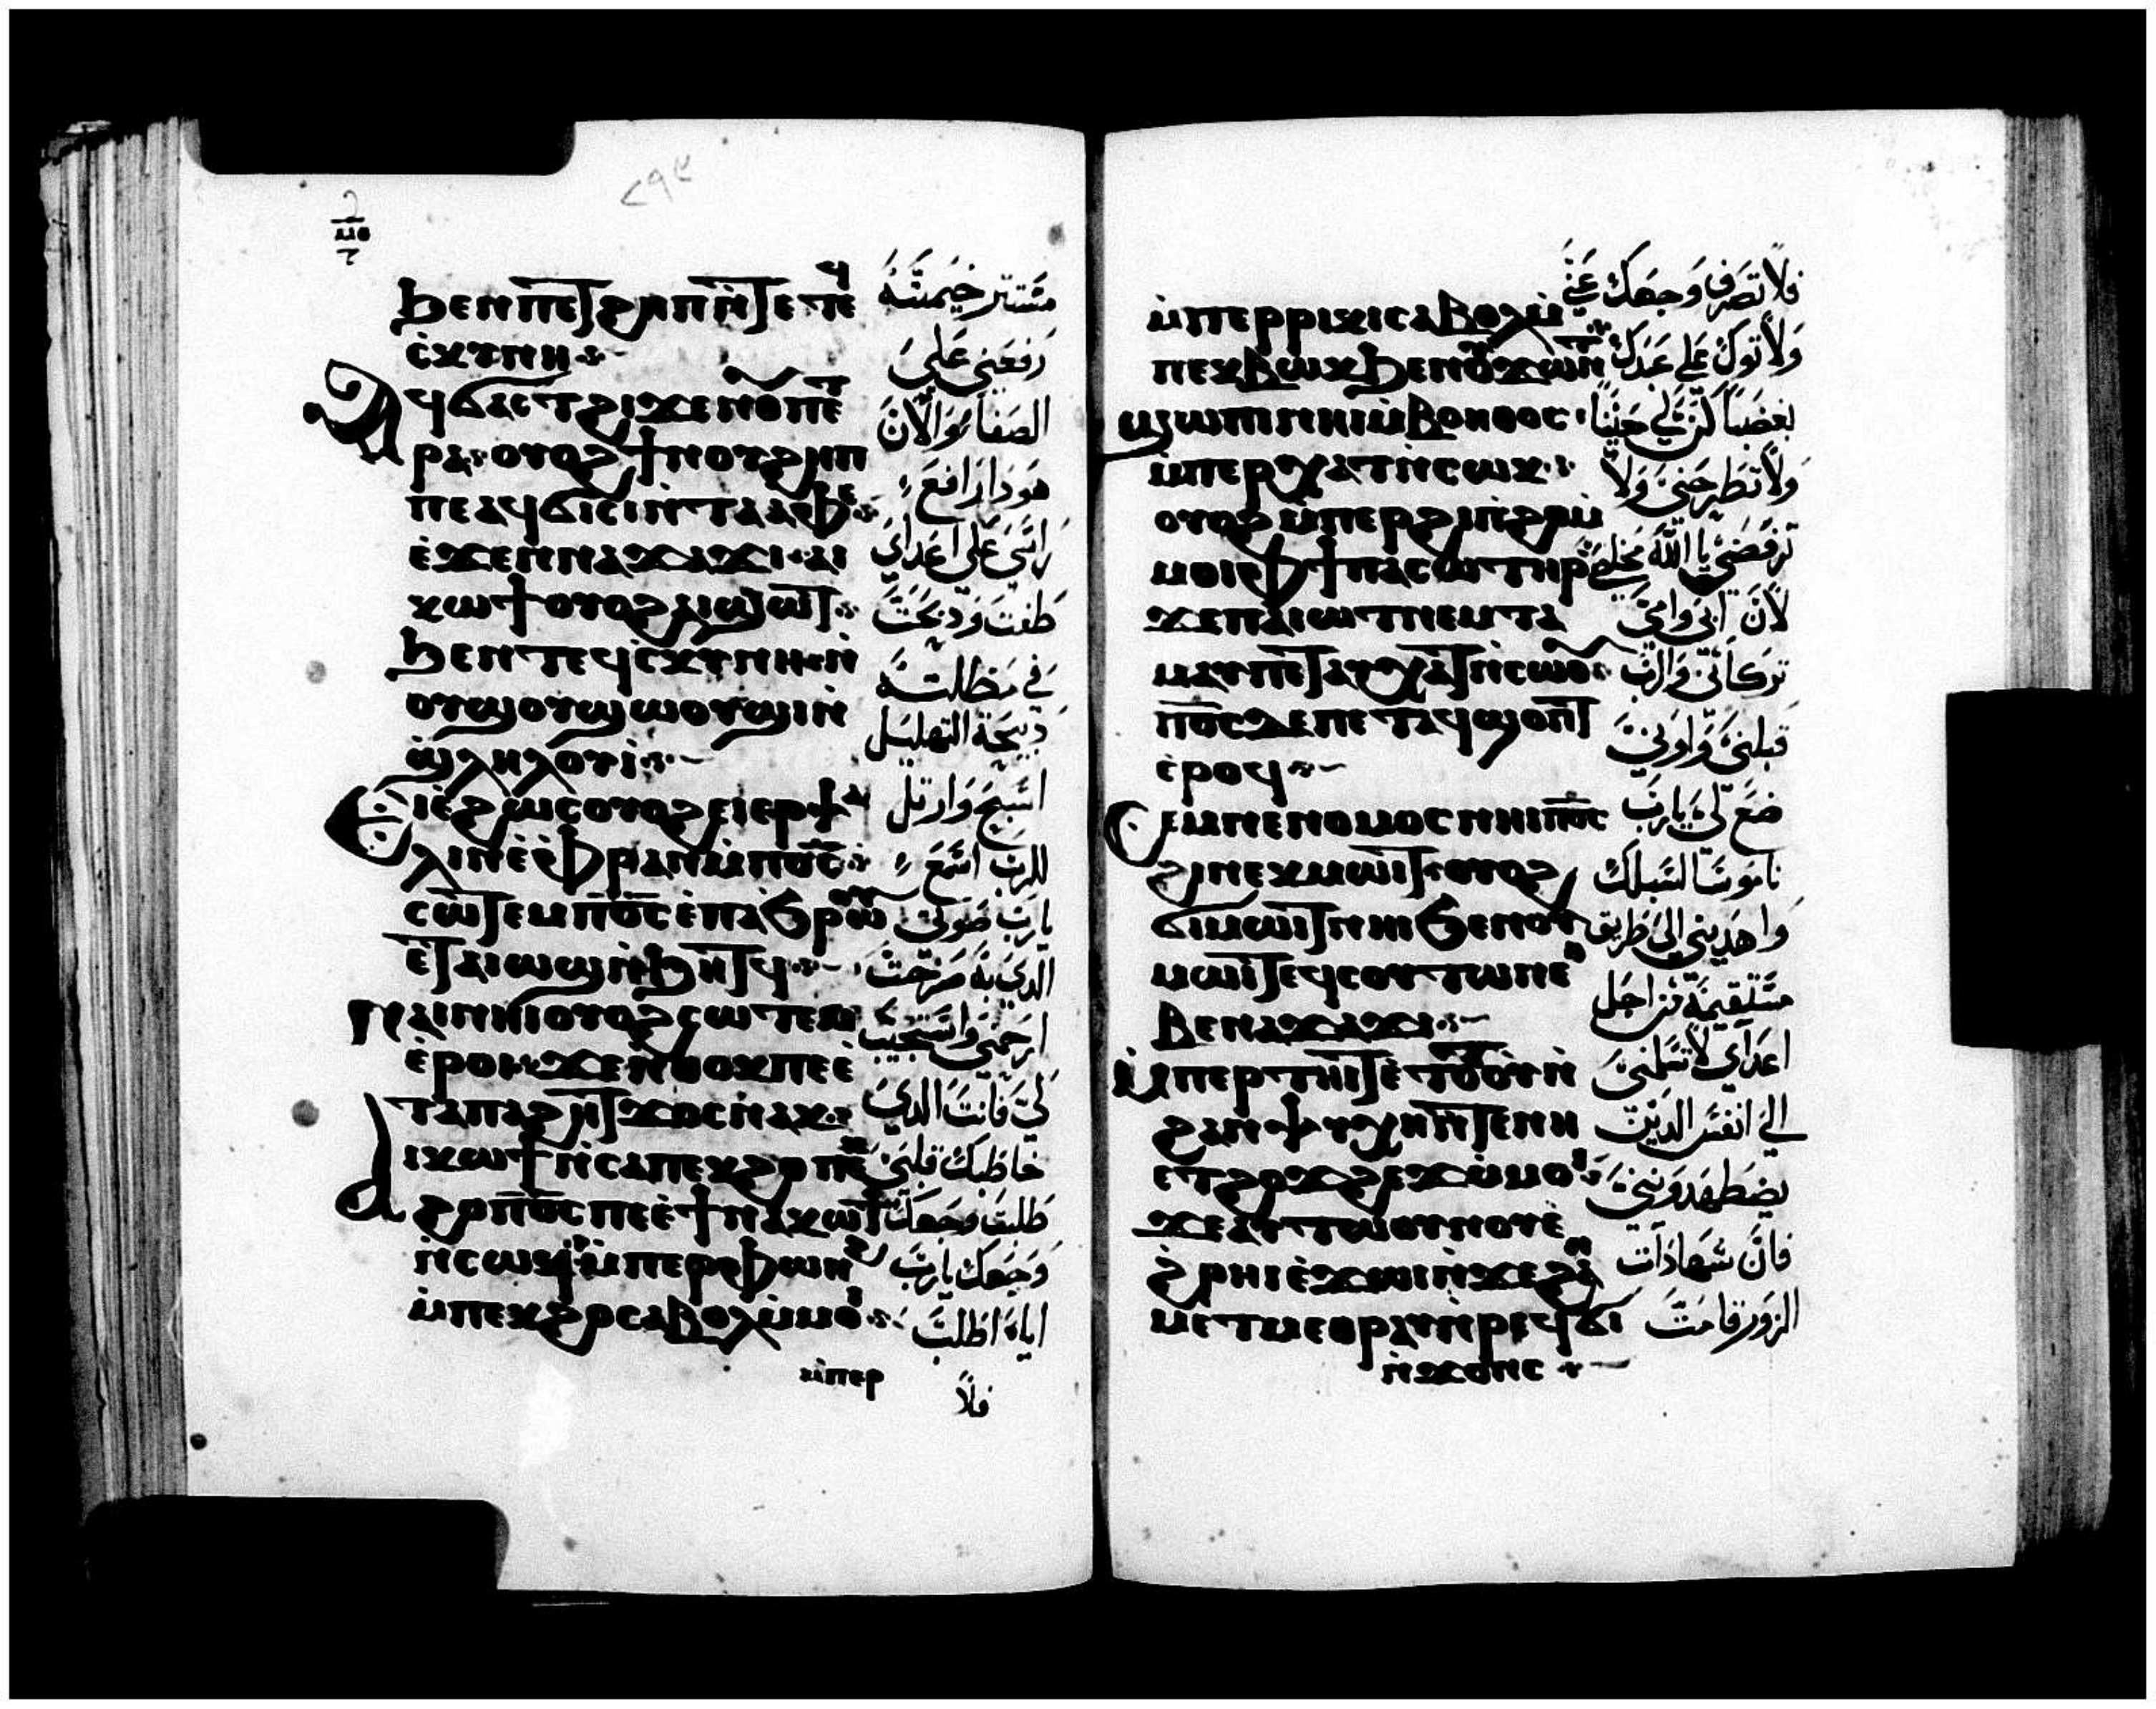 ϧⲉⲛⲡⲉⲧϩⲏⲡⲛ̀ⲧⲉⲧⲉϥ
ⲥ̀ⲕⲩⲛⲏ
Ⲁϥϭⲁⲥⲧϩⲓϫⲉⲛⲟⲩⲡⲉ
ⲧⲣⲁ ⲟⲩⲟϩϯⲛⲟⲩϩⲏⲡ
ⲡⲉⲁϥϭⲓⲥⲓⲛ̀ⲧⲁⲁⲫⲉ
ⲉ̀ϫⲉⲛⲛⲁϫⲁϫⲓ ⲁⲓ
ⲕⲱϯⲟⲩⲟϩⲁⲓϣⲱⲧ
ϧⲉⲛⲧⲉϥⲥ̀ⲕⲩⲛⲏ ⲛ̀
ⲟⲩϣⲟⲩϣⲱⲟⲩϣⲓⲛ̀
ϣ̀ⲗⲏⲗⲟⲩⲓ̀
Ⲉⲓⲉ̀ϩⲱⲥⲟⲩⲟϩⲉⲓⲉⲣⲯⲁ
ⲗⲓⲛⲉ̀ⲫⲣⲁⲛⲙ̀ⲡ︦ⲟ︦ⲥ︦
ⲥⲱⲧⲉⲙⲡ︦ⲟ︦ⲥ︦ⲉ̀ⲡⲁϧ̀ⲣⲱⲟⲩ
ⲉⲧⲁⲓⲱϣⲛ̀ϧⲏⲧϥ
ⲛⲁⲓⲛⲏⲓⲟⲩⲟϩⲥⲱⲧⲉⲙ
ⲉ̀ⲣⲟⲓ ϫⲉⲛ̀ⲑⲟⲕⲡⲉⲉ̀
ⲧⲁⲡⲁϩⲏⲧϫⲟⲥⲛⲁⲕ
Ⲁⲓⲕⲱϯⲛ̀ⲥⲁⲡⲉⲕϩⲟ ⲡⲉⲕ
ϩⲟⲡ︦ⲟ︦ⲥ︦ⲡⲉⲉ̀ϯⲛⲁⲕⲱϯ
ⲛ̀ⲥⲱϥ ⲙ̀ⲡⲉⲣⲫⲱⲛϩ
ⲙ̀ⲡⲉⲕϩⲟⲥⲁⲃⲟⲗⲙ̀ⲙⲟⲓ
ⲙ̀ⲡⲉⲣ
مستتر خيمته
رفعني علي
الصفا والان
هودا رافع
راسي علي اعداي
طفت ودبحت
في مظلته
دبيحة التهليل
اسبح وارتل
للرب اسمع
يارب صوتي
الدي به صرخت
ارحمني واستجيب
لي فانت الدي
خاطبك قلبي
طلبت وجهك
وجهك يارب
اياه اطلب
فلا
ⲙ̀ⲡⲉⲣⲣⲓⲕⲓⲥⲁⲃⲟⲗⲙ̀
ⲡⲉⲕⲃⲱⲕϧⲉⲛⲟⲩϫⲱⲛⲧ
ϣⲱⲡⲓⲛⲏⲓⲙ̀ⲃⲟⲏⲑⲟⲥ
ⲙ̀ⲡⲉⲣⲭⲁⲧⲛ̀ⲥⲱⲕ
ⲟⲩⲟϩⲙ̀ⲡⲉⲣϩⲓⲡ̀ϩⲟⲙ̀
ⲙⲟⲓⲫϯⲡⲁⲥⲱⲧⲏⲣ
ϫⲉⲡⲁⲓⲱⲧⲛⲉⲙⲧⲁ
ⲙⲁⲩⲡⲉⲧⲁⲩⲭⲁⲧⲛ̀ⲥⲱⲟⲩ
ⲡ︦ⲟ︦ⲥ︦ⲇⲉⲡⲉⲧⲁϥϣⲟⲡⲧ
ⲉ̀ⲣⲟϥ
Ⲥⲉⲙⲛⲉⲛⲟⲙⲟⲥⲛⲏⲓⲡ︦ⲟ︦ⲥ︦
ϩⲓⲡⲉⲕⲙⲱⲓⲧ ⲟⲩⲟϩ
ϭⲓⲙⲱⲓⲧⲛⲏⲓϧⲉⲛⲟⲩ
ⲙⲱⲓⲧⲉϥⲥⲟⲩⲧⲱⲛⲉⲑ
ⲃⲉⲛⲁϫⲁϫⲓ
Ⲙ̀ⲡⲉⲣⲧⲏⲓⲧⲉ̀ⲧⲟⲧⲟⲩⲛ̀
ϩⲁⲛⲯⲩⲭⲏⲛ̀ⲧⲉⲛⲏ
ⲉⲧϩⲟϫϩⲉϫⲙ̀ⲙⲟⲓ
ϫⲉⲁⲩⲧⲱⲟⲩⲛⲟⲩⲉ̀
ϩ̀ⲣⲏⲓⲉ̀ϫⲱⲓⲛ̀ϫⲉϩⲁⲛ
ⲙⲉⲧⲙⲉⲑⲣⲉⲩⲛ̀ⲣⲉϥϭⲓ
ⲛ̀ϫⲟⲛⲥ
فلا تصرف وجهك عني
ولا توكل علي عبدك
بغضبا كن لي معينا
ولا تطرحني ولا
ترفضني يا الله مخلصي
لان ابي وامي
تركاني والرب
قبلني واواني
ضع لي يارب
ناموسا لسبلك
واهديني الي طريق
مستقيمة من اجل
اعداي لا تسلمني
الي انفس الدين
يضطهدونني
فان شهادات
الزور قامت